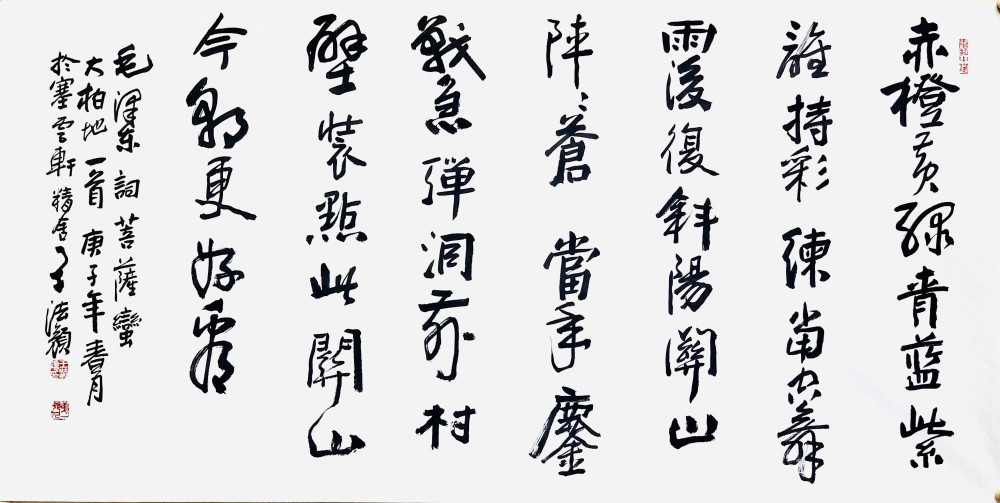 赤橙黄绿青蓝紫
誰持彩練當空舞
雨後復斜陽關山
陣々蒼當年鏖
戰急彈洞前村
壁裝點此關山
今朝更好看
毛澤东詞菩薩蠻
大柏地一首庚子年春月
於塞雲軒精舍